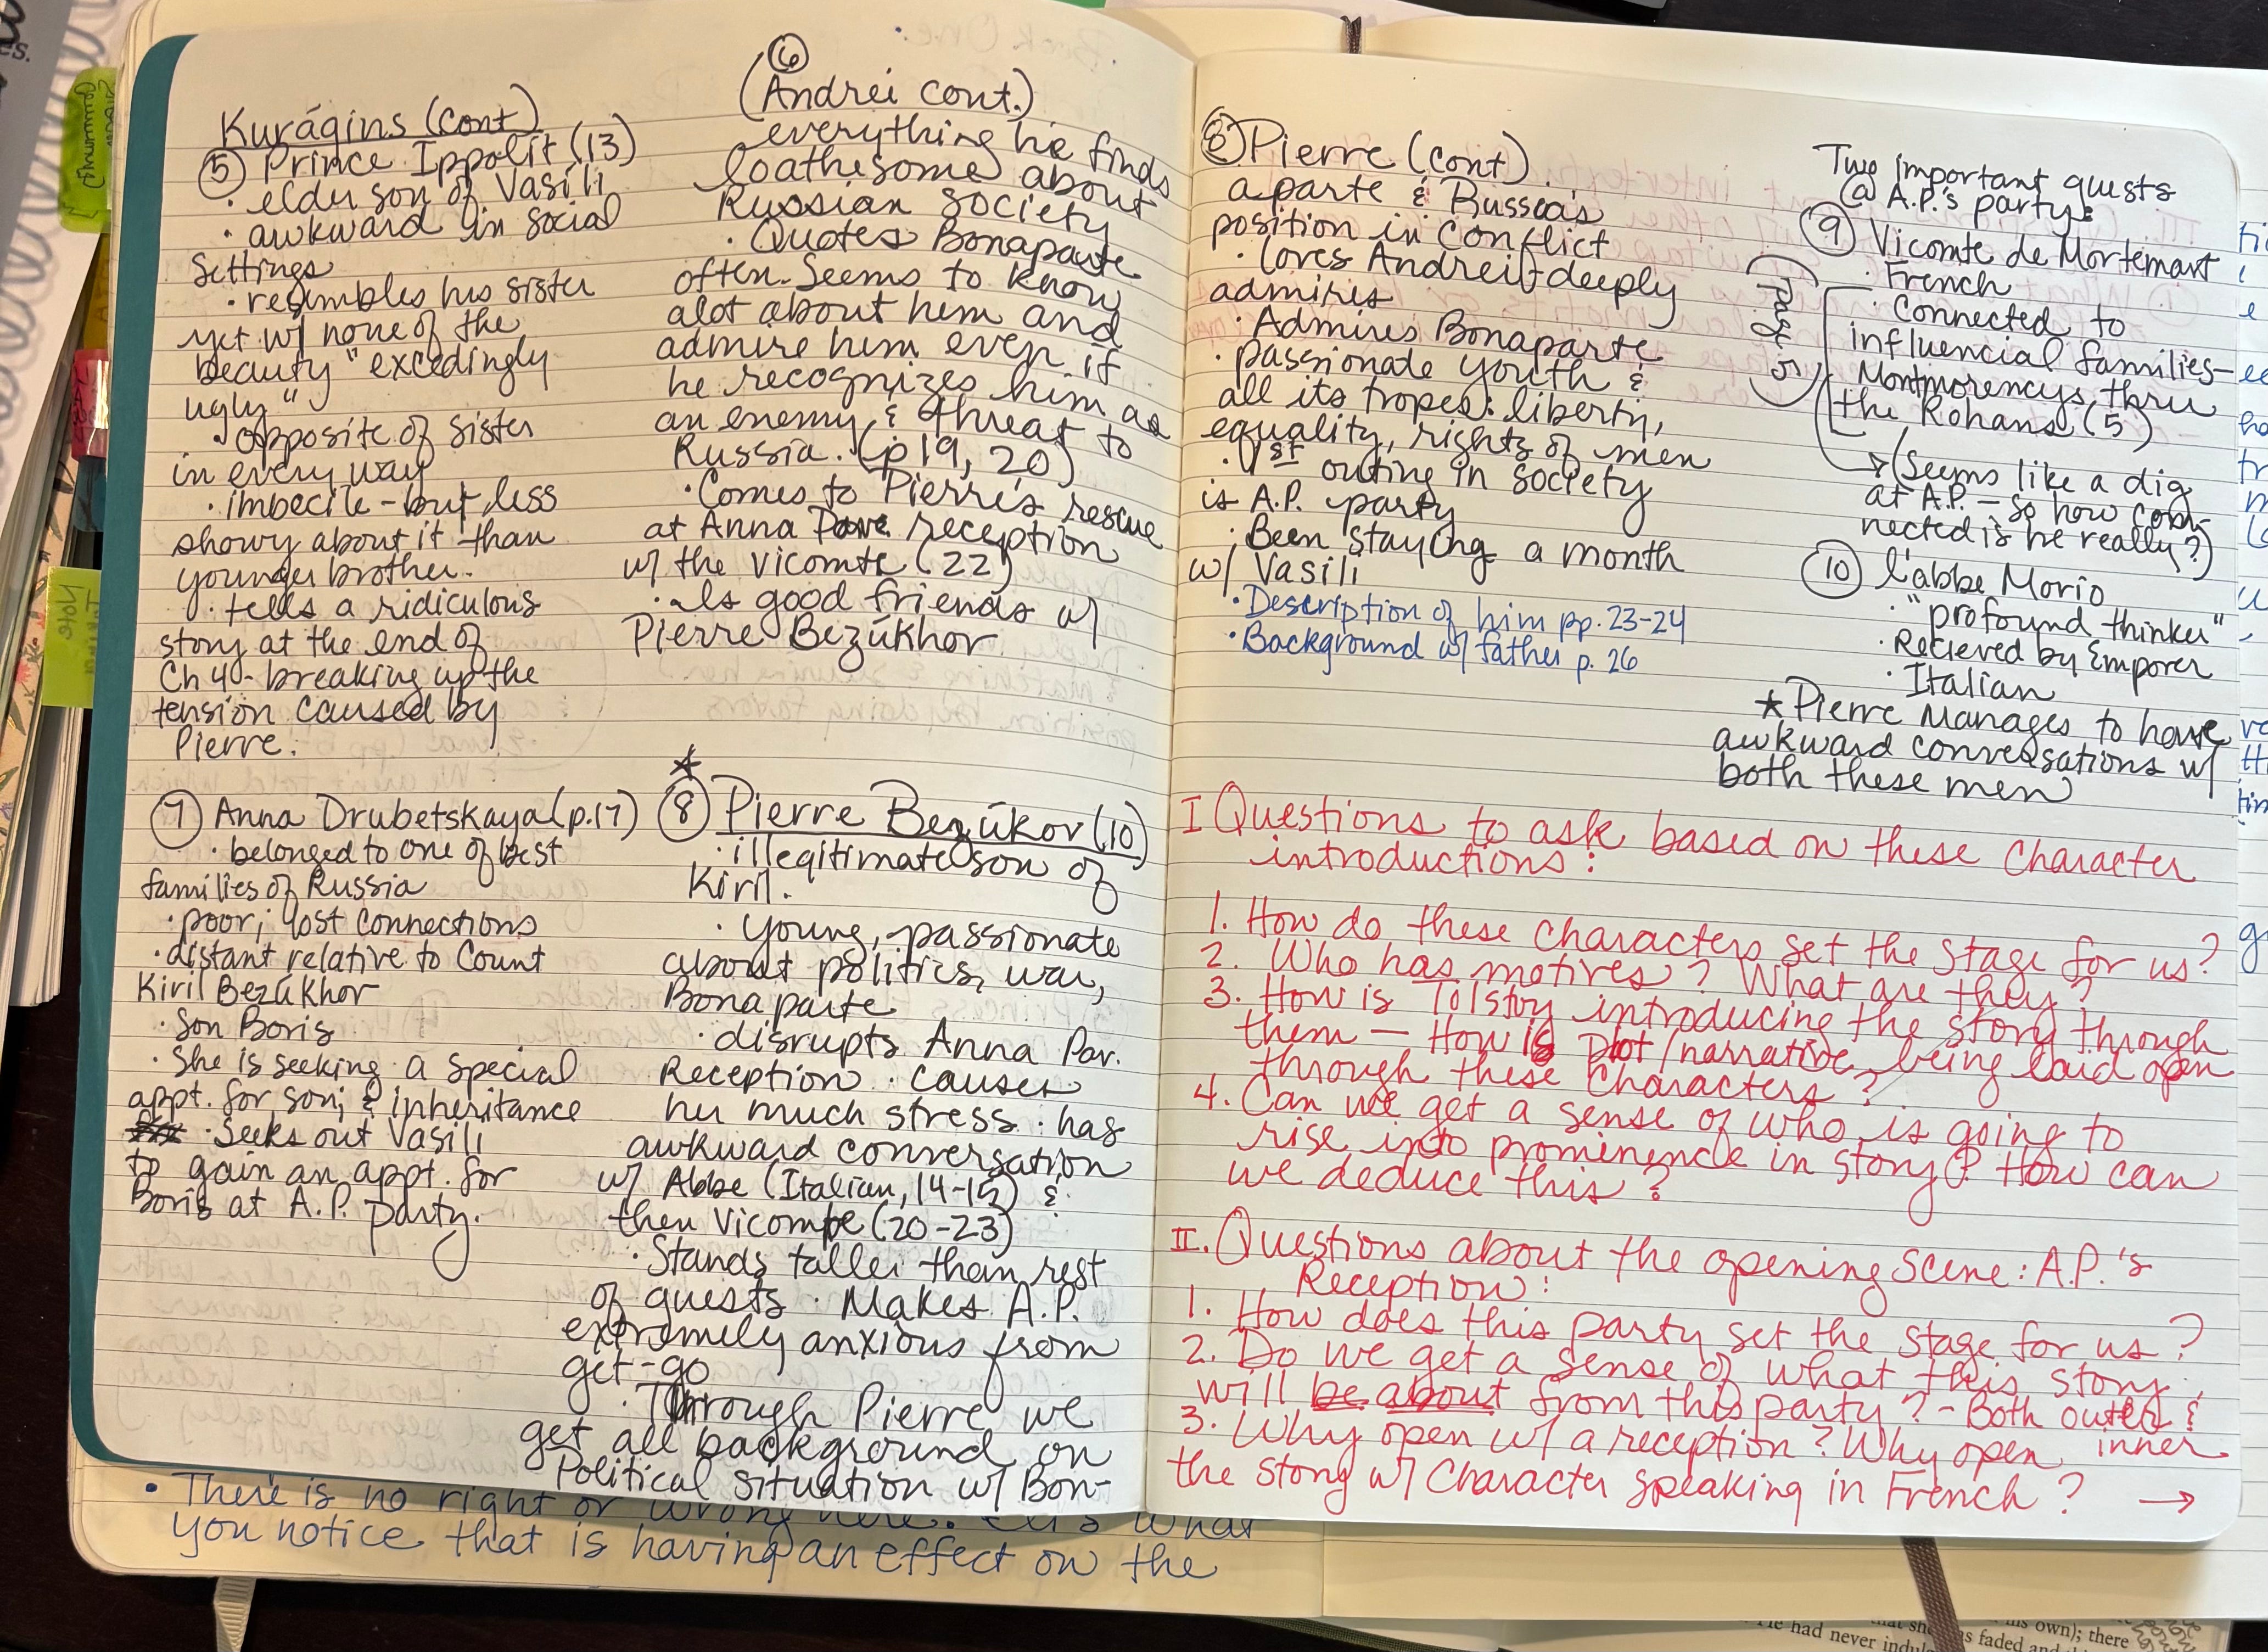 Kurágins (cont)
⑤ Prince Ippolit (13)
· elder son of Vasíli
· awkward in social
settings
· resembles his sister
yet w/ none of the
beauty "excedingly
ugly"
· opposite of sister
in every way
· imbecile - but less
showy about it than
younger brother.
· tells a ridiculous
story at the end of
Ch 4 - breaking up the
tension caused by
Pierre.
⑦ Anna Drubetskaya (p.17)
· belonged to one of best
families of Russia
· poor; lost connections
· distant relative to Count
Kiril Bezúkhor
· Son Boris
· She is seeking a special
appt. for son; & inheritance
· Seeks out Vasíli
to gain an appt. for
Boris at A.P. party.
⑥
(Andrei cont.)
everything he finds
loathesome about
Russian society
· Quotes Bonaparte
often. Seems to know
alot about him and
admire him even if
he recognizes him as
an enemy & threat to
Russia. (p19, 20)
· Comes to Pierre's rescue
at Anna Pav. reception
w/ the Vicomte (22)
· Is good friends w/
Pierre Bezúkhor
★
⑧ Pierre Bezúkov (10)
· illegitimate son of
Kiril.
· young, passionate
about politics, war,
Bonaparte
· disrupts Anna Pav.
Reception · causes
her much stress · has
awkward conversation
w/ Abbe (Italian, 14-15) &
then Vicompte (20-23)
· Stands taller than rest
of guests · Makes A.P.
extremely anxious from
get-go
· Through Pierre we
get all background on
Political situation w/ Bon-
• There is no right or wrong here. It's what
you notice that is having an effect on the
⑧ Pierre (cont)
aparte & Russia's
position in Conflict
· loves Andrei & deeply
admires
· Admires Bonaparte
· passionate youth &
all its tropes: liberty,
equality, rights of men
· 1st outing in society
is A.P. party
· Been staying a month
w/ Vasili
· Description of him pp. 23-24
· Background w/ father p. 26
Two important guests
@ A.P.'s party:
⑨ Vicomte de Mortemart
· French
(page 5)
· Connected to
influencial families-
Montmorencys thru
the Rohans (5)
→ (Seems like a dig
at A.P. - so how con-
nected is he really?)
⑩ l'abbe Morio
· "profound thinker"
· Recieved by Emporer
· Italian
★ Pierre Manages to have
awkward conversations w/
both these men
I Questions to ask based on these Character
introductions:
1. How do these characters set the stage for us?
2. Who has motives? What are they?
3. How is Tolstoy introducing the story through
them — How is Plot/narrative being laid open
through these Characters?
4. Can we get a sense of who is going to
rise into prominence in story? How can
we deduce this?
II. Questions about the opening scene: A.P.'s
Reception:
1. How does this party set the stage for us?
2. Do we get a sense of what this story
will be about from this party? - Both outer &
inner
3. Why open w/ a reception? Why open
the story w/ Character speaking in French? →
He had never indul
his own); there
s faded and